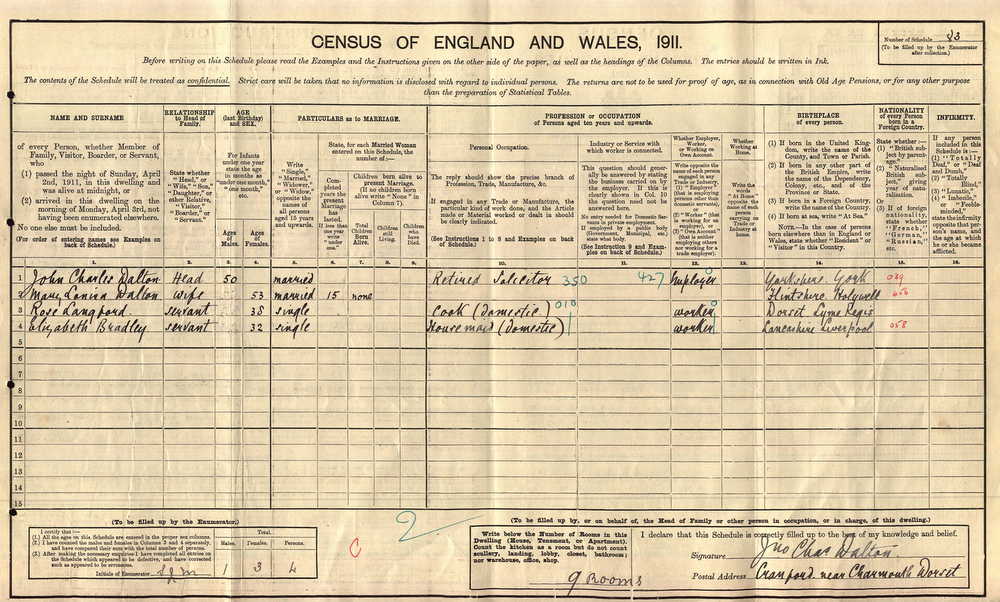 Number of Schedule 83
(To be filled up by the Enumerator after collection.)
CENSUS OF ENGLAND AND WALES, 1911.
Before writing on this Schedule please read the Examples and the Instructions given on the other side of the paper, as well as the headings of the Columns. The entries should be written in Ink.
The contents of the Schedule will be treated as confidential. Strict care will be taken that no information is disclosed with regard to individual persons. The returns are not to be used for proof of age, as in connection with Old Age Pensions, or for any other purpose
than the preparation of Statistical Tables.
NAME AND SURNAME
of every Person, whether Member of
Family, Visitor, Boarder, or Servant,
who
(1) passed the night of Sunday, April
2nd, 1911, in this dwelling and
was alive at midnight, or
(2) arrived in this dwelling on the
morning of Monday, April 3rd, not
having been enumerated elsewhere.
No one else must be included.
(For order of entering names see Examples on
back of Schedule.)
RELATIONSHIP
to Head of
Family.
State whether
"Head," or
"Wife," "Son,"
"Daughter," or
other Relative,
"Visitor,"
"Boarder," or
"Servant."
AGE
(last Birthday)
and SEX.
For Infants
under one year
state the age
in months as
"under one month,"
"one month,"
etc.
Ages
of
Males.
Ages
of
Females.
PARTICULARS as to MARRIAGE.
Write
"Single,"
"Married,"
"Widower,"
or "Widow,"
opposite the
names of all
persons
aged 15 years
and upwards.
State, for each Married Woman
entered on this Schedule, the
number of:—
Completed
years the
present
Marriage
has
lasted.
If less than
one year
write
"under
one."
Children born alive to
present Marriage.
(If no children born
alive write "None" in
Column 7).
Total
Children
Born
Alive.
Children
still
Living.
Children
who
have
Died.
PROFESSION or OCCUPATION
of Persons aged ten years and upwards.
Personal Occupation.
The reply should show the precise branch of
Profession, Trade, Manufacture, &c.
If engaged in any Trade or Manufacture, the
particular kind of work done, and the Article
made or Material worked or dealt in should
be clearly indicated.
(See Instructions 1 to 8 and Examples on back
of Schedule.)
Industry or Service with
which worker is connected.
This question should generally
be answered by stating
the business carried on by
the employer. If this is
clearly shown in Col. 10
the question need not be
answered here.
No entry needed for Domestic Servants
in private employment.
If employed by a public body
(Government, Municipal, etc.)
state what body.
(See Instruction 9 and Examples
on back of Schedule.)
Whether Employer,
Worker, or
Working on
Own Account.
Write opposite the
name of each person
engaged in any
Trade or Industry,
(1) "Employer"
(that is employing
persons other than
domestic servants),
or
(2) "Worker" (that
is working for an
employer), or
(3) "Own Account"
(that is neither
employing others
nor working for a
trade employer).
Whether
Working at
Home.
Write the
words
"At Home"
opposite the
name of each
person
carrying on
Trade or
Industry at
Home.
BIRTHPLACE
of every person.
(1) If born in the United Kingdom,
write the name of the
County, and Town or Parish.
(2) If born in any other part of
the British Empire, write
the name of the Dependency,
Colony, etc., and of the
Province or State.
(3) If born in a Foreign Country,
write the name of the Country.
(4) If born at sea, write "At Sea."
NOTE.—In the case of persons
born elsewhere than in England or
Wales, state whether "Resident" or
"Visitor" in this Country.
NATIONALITY
of every Person
born in a
Foreign Country.
State whether:—
(1) "British
subject by
parentage,"
(2) "Naturalised
British subject,"
giving
year of
naturalization.
Or
(3) If of foreign
nationality,
state whether
"French,"
"German,"
"Russian,"
etc.
INFIRMITY.
If any person
included in this
Schedule is:—
(1) "Totally
Deaf," or "Deaf
and Dumb,"
(2) "Totally
Blind,"
(3) "Lunatic,"
(4) "Imbecile,"
or "Feeble-minded,"
state the infirmity
opposite that person's
name, and
the age at which
he or she became
afflicted.
1. 2. 3. 4. 5. 6. 7. 8. 9. 10. 11. 12. 13. 14. 15. 16.
1 John Charles Dalton Head 50 married Retired Solicitor 350 427 Employer 0 Yorkshire York 039
2 Mary Louisa Dalton wife 53 married 15 none Flintshire Holywell
3 Rose Langford servant 38 single Cook (Domestic) 010 worker 0 Dorset Lyme Regis
4 Elizabeth Bradley servant 32 single Housemaid (Domestic) 1 worker 1 Lancashire Liverpool 058
5
6
7
8
9
10
11
12
13
14
15
(To be filled up by the Enumerator.)
I certify that:—
(1.) All the ages on this Schedule are entered in the proper sex columns.
(2.) I have counted the males and females in Columns 3 and 4 separately,
and have compared their sum with the total number of persons.
(3.) After making the necessary enquiries I have completed all entries on
the Schedule which appeared to be defective, and have corrected
such as appeared to be erroneous.
Initials of Enumerator
Total.
Males. Females. Persons.
1 3 4
C
2
(To be filled up by, or on behalf of, the Head of Family or other person in occupation, or in charge, of this dwelling.)
Write below the Number of Rooms in this
Dwelling (House, Tenement, or Apartment).
Count the kitchen as a room but do not count
scullery, landing, lobby, closet, bathroom;
nor warehouse, office, shop.
9 rooms
I declare that this Schedule is correctly filled up to the best of my knowledge and belief.
Signature Jno Chas Dalton.
Postal Address Cranford near Charmouth Dorset